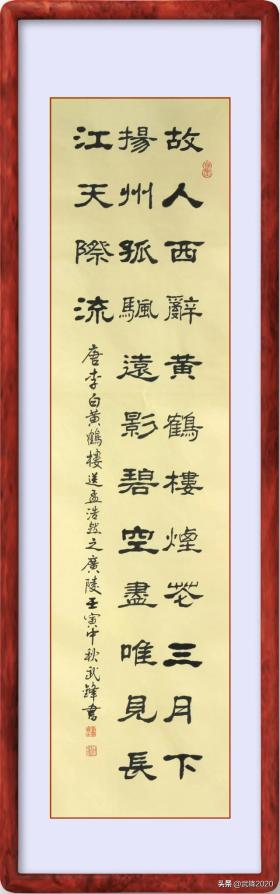 故人西辭黃鶴樓煙花三月下
揚州孤颿遠影碧空盡唯見長
江天際流
唐李白黃鶴樓送孟浩然之廣陵壬寅中秋武鋒書
头条 @武锋2020